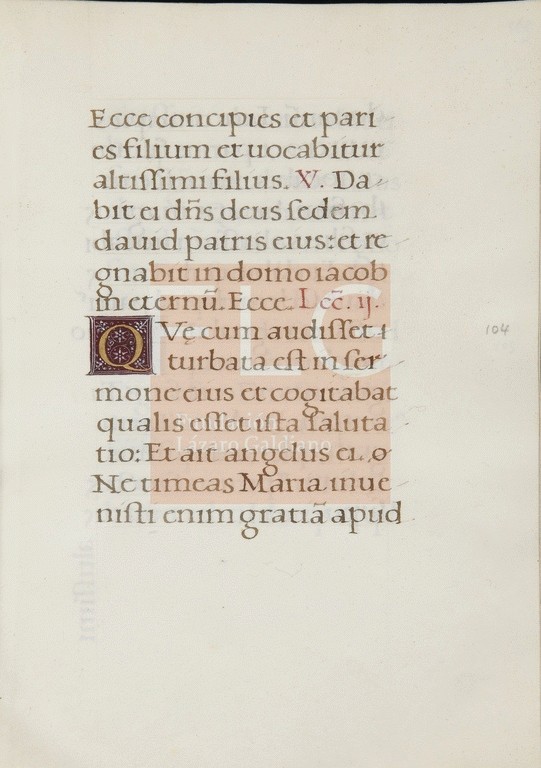 Ecce concipies et pari
es filium et uocabitur
altissimi filius. V. Da
bit ei dñs deus sedem
dauid patris eius: et re
gnabit in domo iacob
in eternū. Ecce. Lec̃. ij.
QVe cum audisset
turbata est in ser
mone eius et cogitabat
qualis esset ista saluta
tio: Et ait angelus ei.
Ne timeas Maria inue
nisti enim gratiā apud
104
FLG
Fundación
Lázaro Galdiano